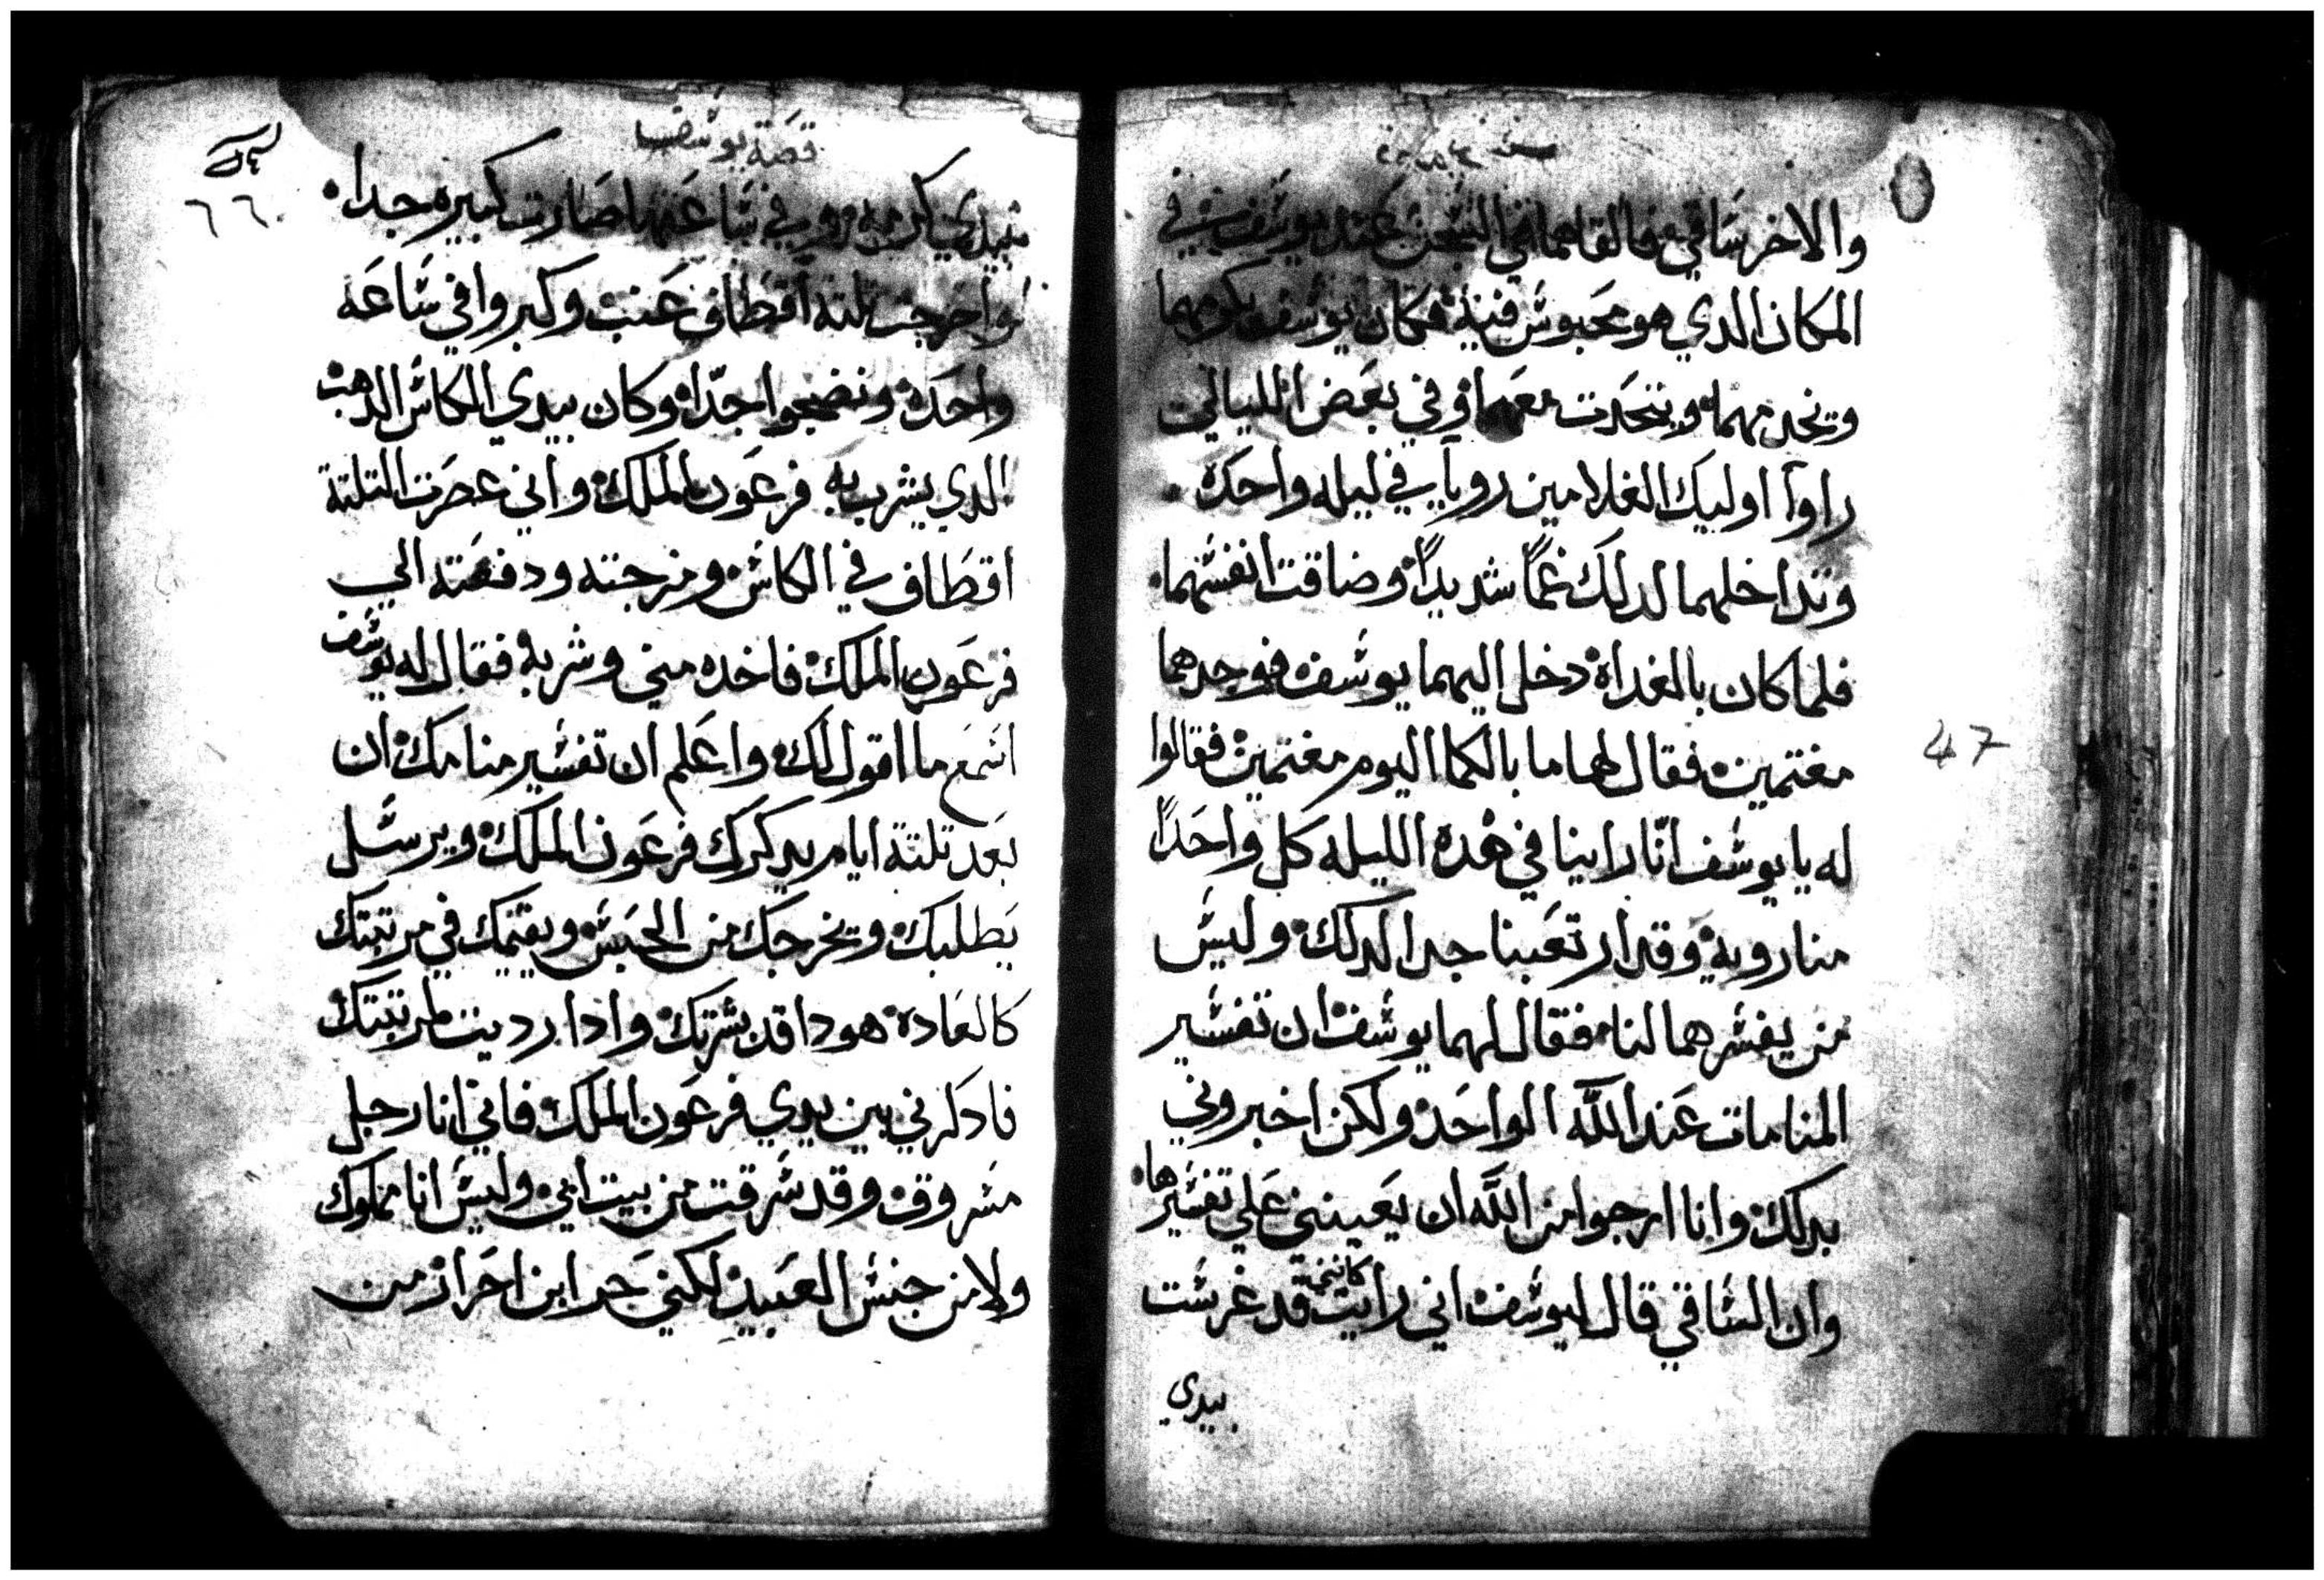 والاخر ساقي فالقاهما في السجن عند يوسف في
المكان الدي هو محبوس فيه فكان يوسف يكرمهما
ويخدمهما ويتحدت معهما وفي بعض الليالي
راوا اوليك الغلامين رويا في ليله واحده
وتداخلهما لدلك غمًا شديدًا وضاقت انفسهما
فلما كان بالغداه دخل اليهما يوسف فوجدهما
مغتمين فقال لهما ما بالكما اليوم مغتمين فقالوا
له يا يوسف انّا راينا في هده الليله كل واحدًا
منا رويه وقد ارتعبنا جدا لدلك وليس
من يفسرهما لنا فقال لهما يوسف ان تفسير
المنامات عند الله الواحد ولكن اخبروني
بدلك وانا ارجوا من الله ان يعينني علي تفسيرها
وان الساقي قال ليوسف اني رايت كانني قد غرست
بيدي
47
قصة يوسف
٦٦
بيدي كرمه وفي ساعتها صارت كبيره جدا
واخرجت تلتة اقطاف عنب وكبروا في ساعه
واحده ونضجوا جدّا وكان بيدي الكاس الدهب
الدي يشرب به فرعون الملك واني عصرت التلتة
اقطاف في الكاس ومزجته ودفعته الي
فرعون الملك فاخده مني وشربه فقال له يوسف
اسمع ما اقول لك واعلم ان تفسير منامك ان
بعد تلتة ايام يدكرك فرعون الملك ويرسل
يطلبك ويخرجك من الحبس ويقيمك في مرتبتك
كالعاده هودا قد بشرتك وادا رديت لمرتبتك
فادكرني بين يدي فرعون الملك فاني انا رجل
مسروق وقد سرقت من بيت ابي وليس انا مملوك
ولا من جنس العبيد لكني حر ابن احرار من